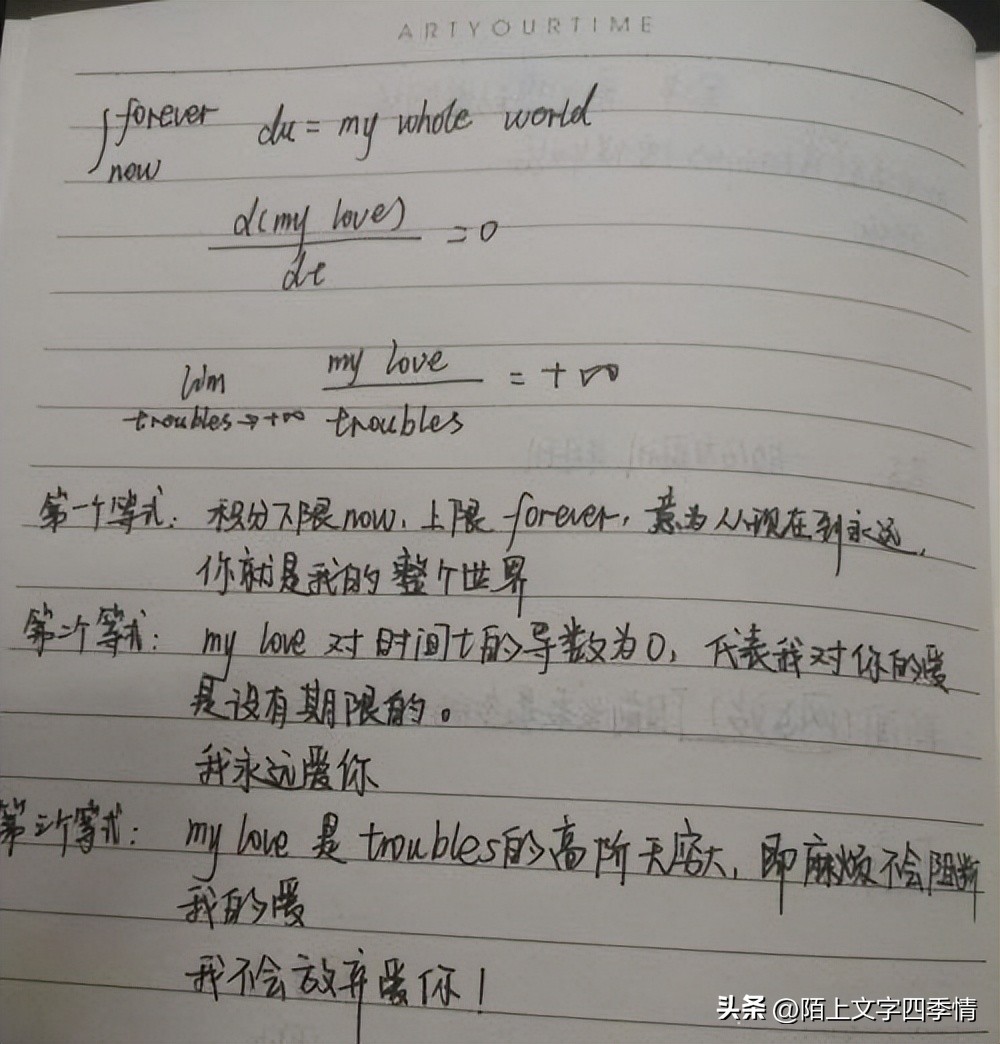 ARTYOURTIME
∫ forever
now du = my whole world
d(my love)
dt = 0
lim troubles→+∞ my love
troubles = +∞
第一个等式: 积分下限now, 上限 forever, 意为从现在到永远,
你就是我的整个世界
第二个等式: my love 对时间t的导数为0, 代表我对你的爱
是没有期限的。
我永远爱你
第三个等式: my love 是 troubles的高阶无穷大, 即麻烦不会阻断
我的爱
我不会放弃爱你!
头条 @陌上文字四季情